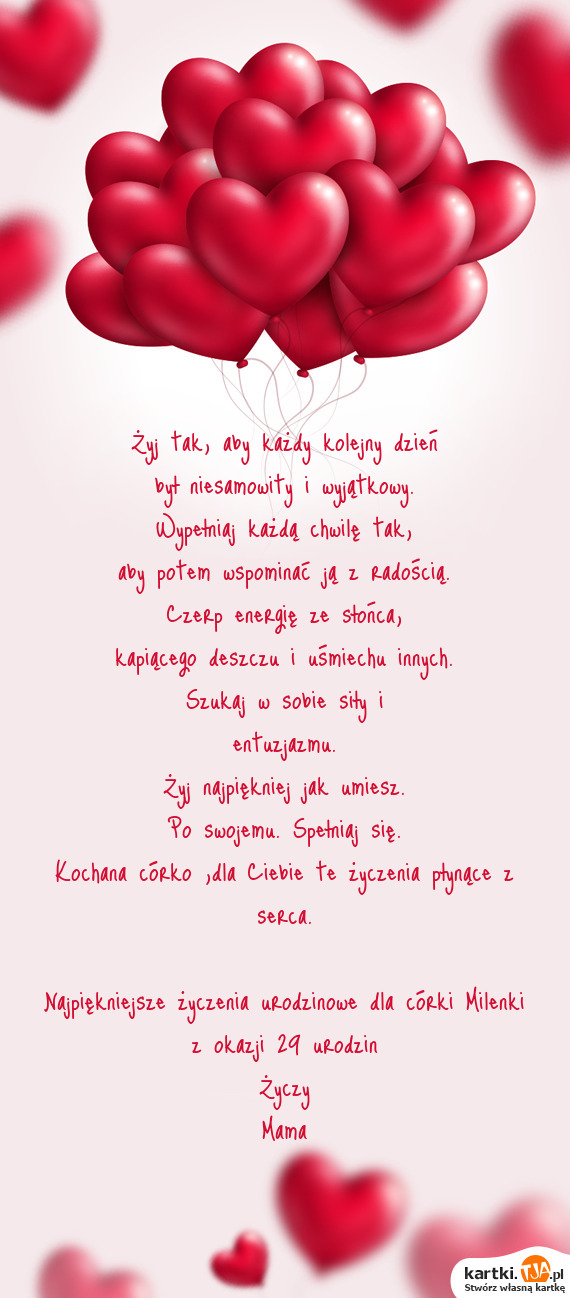 Żyj tak, aby każdy kolejny dzień
był niesamowity i wyjątkowy.
Wypełniaj każdą chwilę tak,
aby potem wspominać ją z radością.
Czerp energię ze słońca,
kapiącego deszczu i uśmiechu innych.
Szukaj w sobie siły i
entuzjazmu.
Żyj najpiękniej jak umiesz.
Po swojemu. Spełniaj się.
Kochana córko ,dla Ciebie te życzenia płynące z
serca.
Najpiękniejsze życzenia urodzinowe dla córki Milenki
z okazji 29 urodzin
Życzy
Mama
kartki.TJA.pl
Stwórz własną kartkę